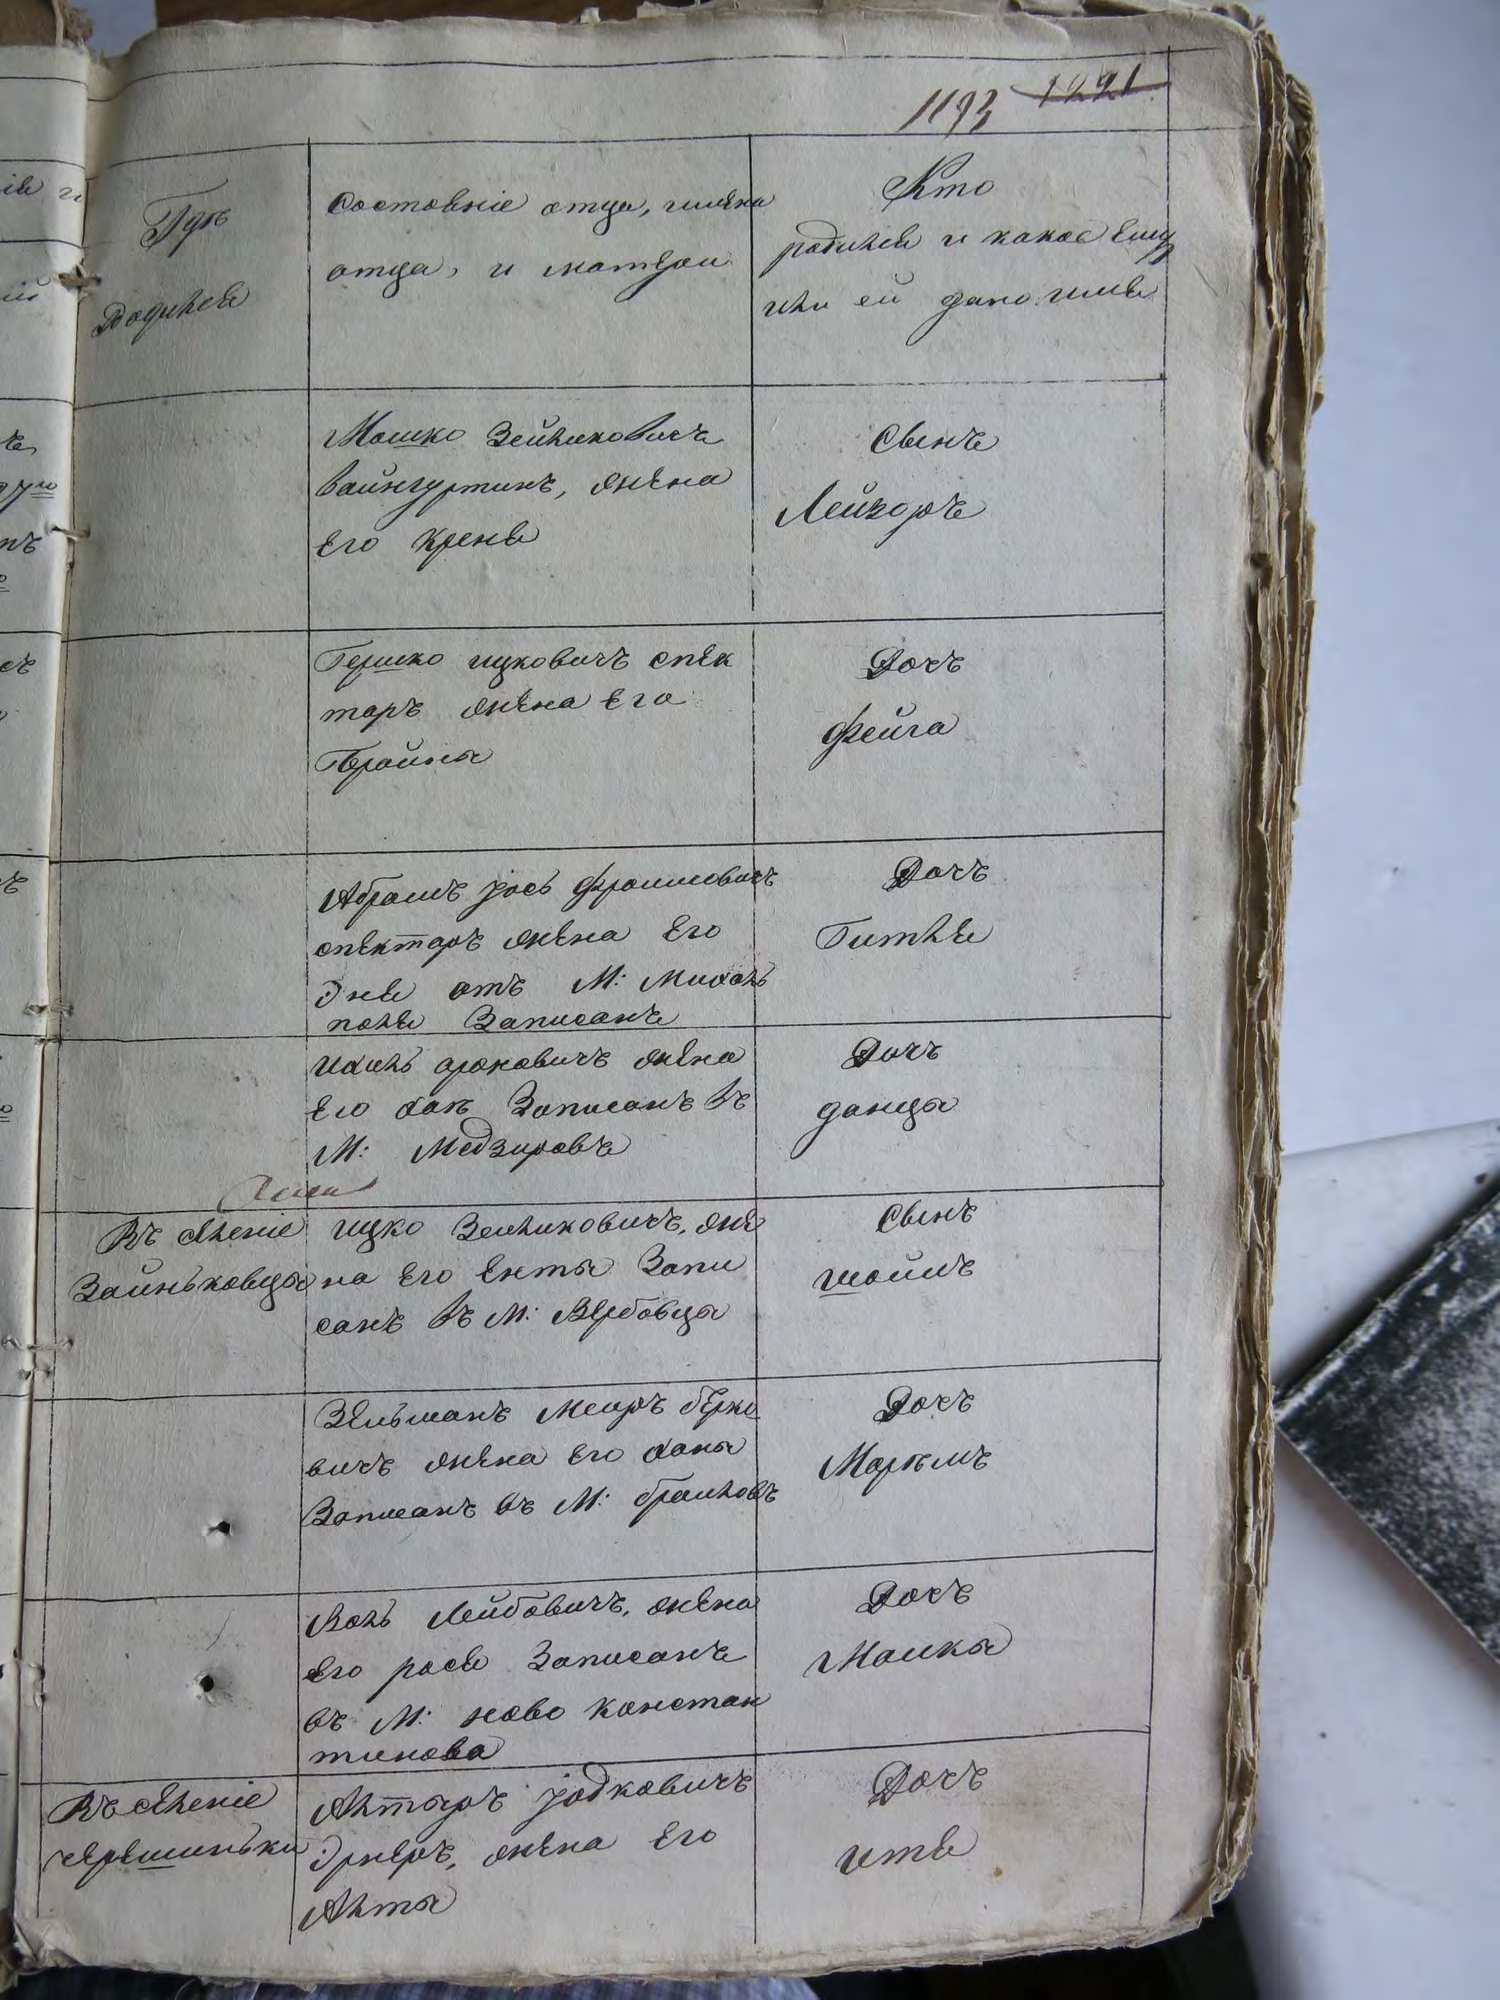 1193 1221
Гдѣ
Родился
Состояніе отца, имена
отца, и матери
Кто
родился и какое ему
или ей дано имя
Мошко Зейликовичъ
Вайнгуртинъ, жена
его Крейня
Сынъ
Лейзоръ
Гершко ицковичъ спек
торъ жена его
Брайна
Дочъ
Фейга
Абрамъ Јось Фроимовичъ
спекторъ жена его
Эня отъ М: Михаль
поля Записанъ
Дочъ
Гитля
Ихиль ароновичъ жена
его хая Записанъ въ
М: Медзировъ
Дочъ
данцы
Въ селеніе
Зайньковцы
ицко Зеликовичъ, же
на его Енты Запи
санъ въ М: Вербовцы
Сынъ
шоимъ
Зельманъ Меиръ берко
вичъ жена его ханы
Записанъ въ М: браиловъ
Дочъ
Марьямъ
Воль Лейбовичъ, жена
его рося Записанъ
въ М: ново констан
тинова
Дочъ
Малка
Въ селеніе
черешиньки
Алтеръ Јодковичъ
Эрлеръ, жена его
Алта
Дочъ
итя